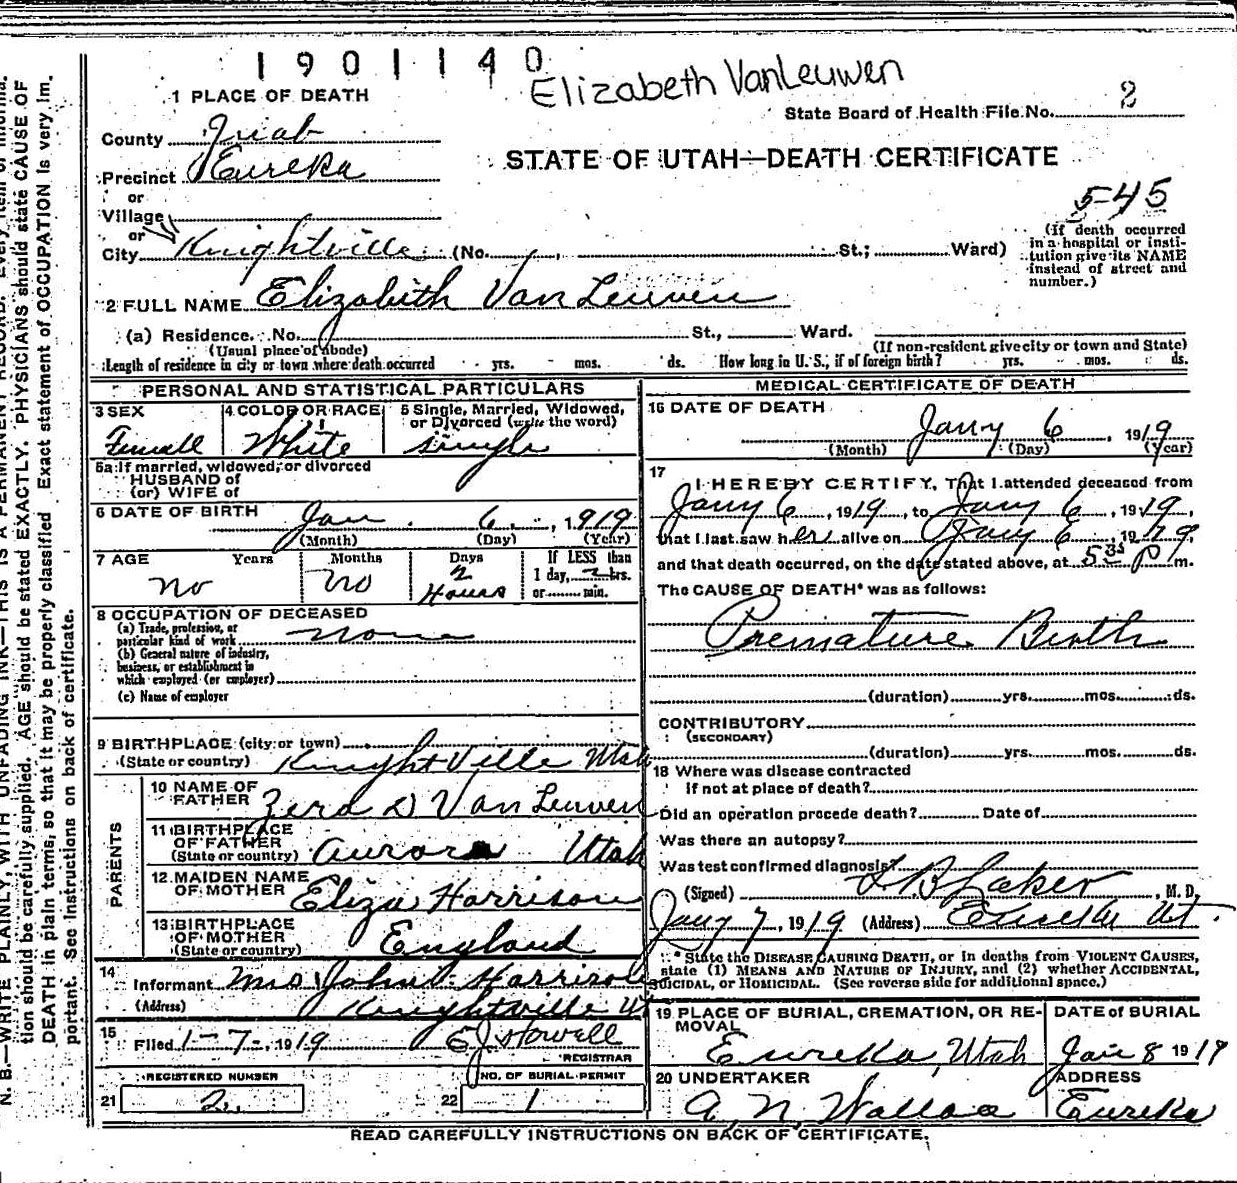 1901140
Elizabeth VanLeuwen
1 PLACE OF DEATH
State Board of Health File No. 2
County Juab
STATE OF UTAH—DEATH CERTIFICATE
Precinct Eureka
or
Village
or
545
City Knightville (No. St.; Ward)
(If death occurred
in a hospital or insti-
tution give its NAME
instead of street and
number.)
2 FULL NAME Elizabith Van Leuven
(a) Residence. No. St., Ward.
(Usual place of abode) (If non-resident give city or town and State)
Length of residence in city or town where death occurred yrs. mos. ds. How long in U. S., if of foreign birth? yrs. mos. ds.
PERSONAL AND STATISTICAL PARTICULARS
3 SEX 4 COLOR OR RACE 5 Single, Married, Widowed,
or Divorced (write the word)
Femall White single
5a If married, widowed, or divorced
HUSBAND of
(or) WIFE of
6 DATE OF BIRTH Jan 6, 1919
(Month) (Day) (Year)
7 AGE Years Months Days If LESS than
1 day, 2 hrs.
or min.
No No 2
Hours
8 OCCUPATION OF DECEASED
(a) Trade, profession, or
particular kind of work None
(b) General nature of industry,
business, or establishment in
which employed (or employer)
(c) Name of employer
9 BIRTHPLACE (city or town)
(State or country) Knight Ville Utah
PARENTS
10 NAME OF
FATHER Zera D Van Leuven
11 BIRTHPLACE
OF FATHER
(State or country) Aurora Utah
12 MAIDEN NAME
OF MOTHER Eliza Harrison
13 BIRTHPLACE
OF MOTHER
(State or country) England
14
Informant Mrs John Harrison
(Address) Knightville Ut
15
Filed 1-7-, 1919 E J Howell
REGISTRAR
REGISTERED NUMBER NO. OF BURIAL PERMIT
21 2. 22 1
MEDICAL CERTIFICATE OF DEATH
16 DATE OF DEATH
Jany 6, 1919
(Month) (Day) (Year)
17
I HEREBY CERTIFY, That I attended deceased from
Jany 6, 1919, to Jany 6, 1919,
that I last saw her alive on Jany 6, 1919,
and that death occurred, on the date stated above, at 5 35 P m.
The CAUSE OF DEATH* was as follows:
Premature Birth
(duration) yrs. mos. ds.
CONTRIBUTORY
(SECONDARY)
(duration) yrs. mos. ds.
18 Where was disease contracted
if not at place of death?
Did an operation precede death? Date of
Was there an autopsy?
Was test confirmed diagnosis?
(Signed) Laker, M. D.
Jany 7, 1919 (Address) Eureka Ut.
* State the DISEASE CAUSING DEATH, or in deaths from VIOLENT CAUSES,
state (1) MEANS AND NATURE OF INJURY, and (2) whether ACCIDENTAL,
SUICIDAL, or HOMICIDAL. (See reverse side for additional space.)
19 PLACE OF BURIAL, CREMATION, OR RE-
MOVAL
DATE of BURIAL
Eureka, Utah Jan 8 1919
20 UNDERTAKER ADDRESS
A. N. Wallace Eureka
READ CAREFULLY INSTRUCTIONS ON BACK OF CERTIFICATE.
N. B.—WRITE PLAINLY, WITH UNFADING INK—THIS IS A PERMANENT RECORD. Every item of informa-
tion should be carefully supplied. AGE should be stated EXACTLY. PHYSICIANS should state CAUSE OF
DEATH in plain terms, so that it may be properly classified. Exact statement of OCCUPATION is very im-
portant. See Instructions on back of certificate.